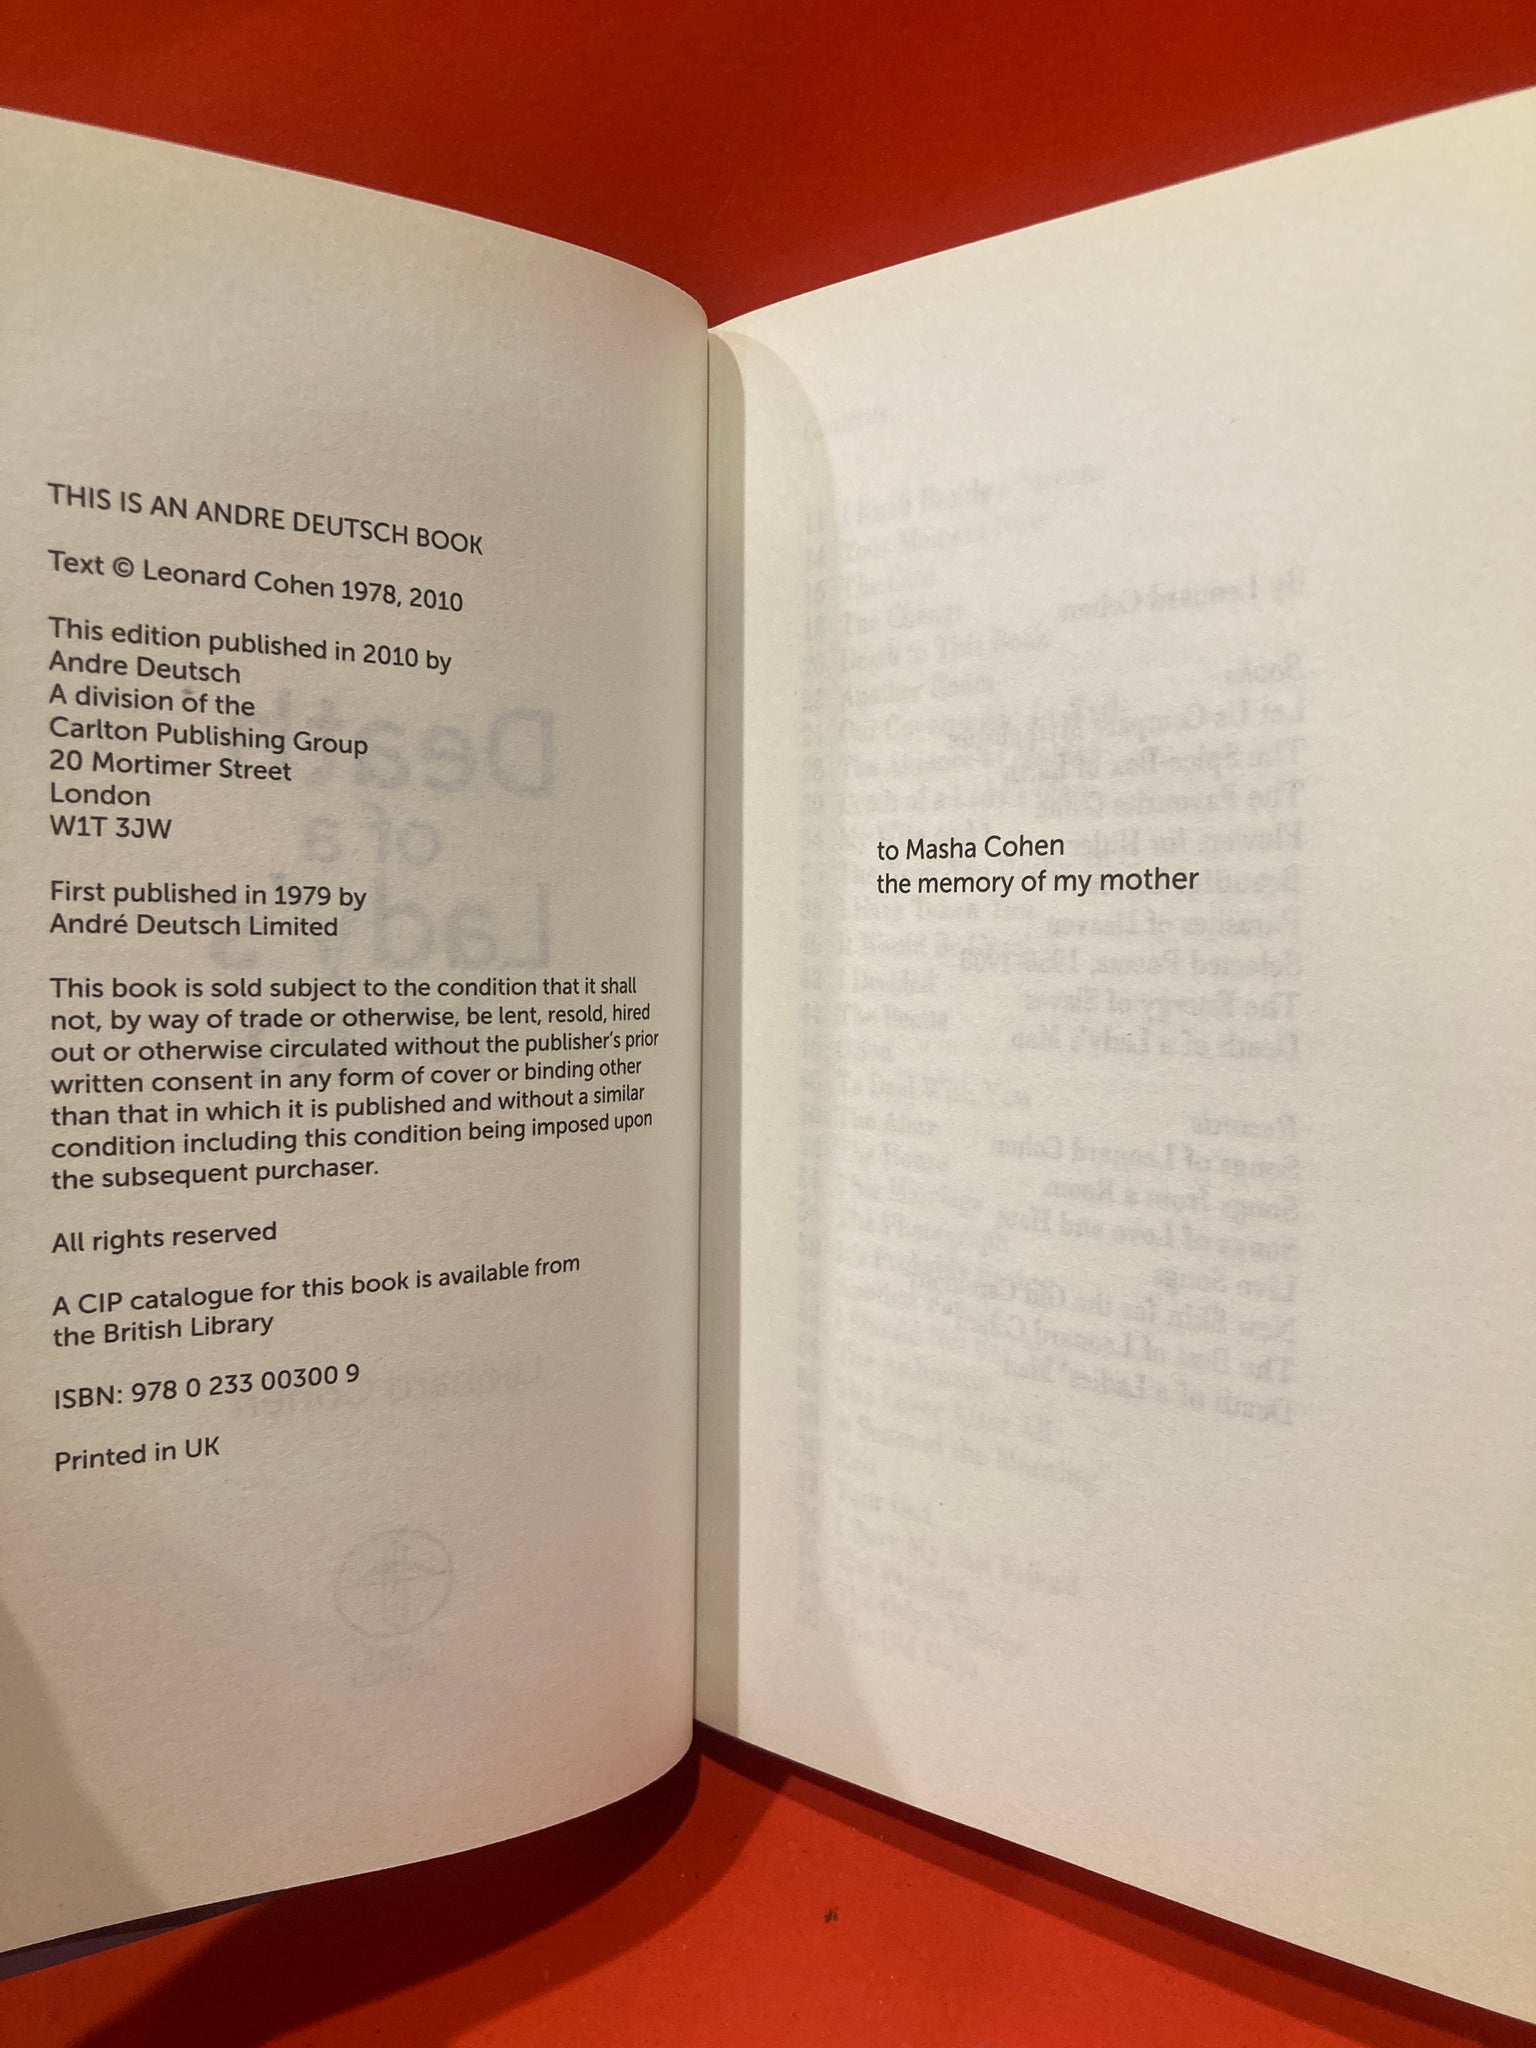 THIS IS AN ANDRE DEUTSCH BOOK
Text © Leonard Cohen 1978, 2010
This edition published in 2010 by
Andre Deutsch
A division of the
Carlton Publishing Group
20 Mortimer Street
London
W1T 3JW
First published in 1979 by
André Deutsch Limited
This book is sold subject to the condition that it shall
not, by way of trade or otherwise, be lent, resold, hired
out or otherwise circulated without the publisher's prior
written consent in any form of cover or binding other
than that in which it is published and without a similar
condition including this condition being imposed upon
the subsequent purchaser.
All rights reserved
A CIP catalogue for this book is available from
the British Library
ISBN: 978 0 233 00300 9
Printed in UK
to Masha Cohen
the memory of my mother